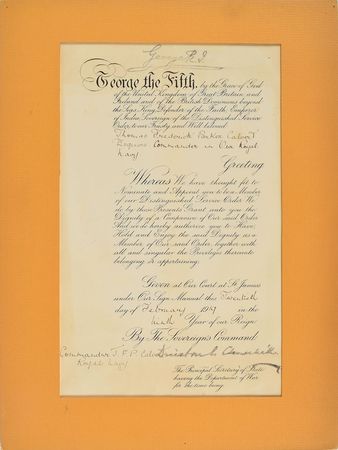 George R.I.
George the Fifth, by the Grace of God
of the United Kingdom of Great Britain and
Ireland and of the British Dominions beyond
the Seas King, Defender of the Faith, Emperor
of India, Sovereign of the Distinguished Service
Order, to our Trusty and Well beloved
Thomas Frederick Parker Calvert
Esquire, Commander in Our Royal
Navy
Greeting
Whereas We have thought fit to
Nominate and Appoint you to be a Member
of our Distinguished Service Order We
do by these Presents Grant unto you the
Dignity of a Companion of Our said Order
And we do hereby authorize you to Have,
Hold and Enjoy the said Dignity as a
Member of Our said Order, together with
all and singular the Privileges thereunto
belonging or appertaining.
Given at Our Court at St. James's
under Our Sign Manual this Twentieth
day of February 1919 in the
ninth Year of our Reign
By The Sovereign's Command.
Commander T. F. P. Calvert
Royal Navy
Winston S. Churchill
The Principal Secretary of State
having the Department of War
for the time being.